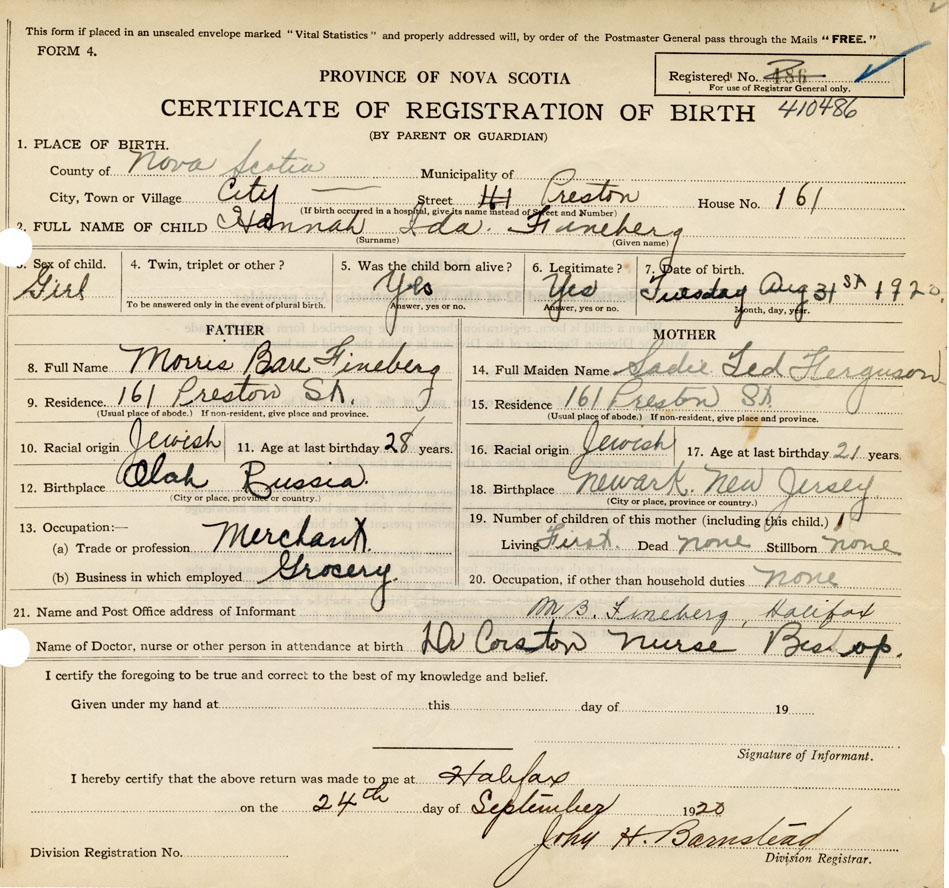 This form if placed in an unsealed envelope marked "Vital Statistics" and properly addressed will, by order of the Postmaster General pass through the Mails "FREE."
FORM 4.
PROVINCE OF NOVA SCOTIA
Registered No. 486
For use of Registrar General only.
CERTIFICATE OF REGISTRATION OF BIRTH 410486
(BY PARENT OR GUARDIAN)
1. PLACE OF BIRTH.
County of Nova Scotia Municipality of
City, Town or Village City Street Preston House No. 161
(If birth occurred in a hospital, give its name instead of Street and Number)
2. FULL NAME OF CHILD Hannah Ida. Fineberg
(Surname) (Given name)
3. Sex of child. 4. Twin, triplet or other? 5. Was the child born alive? 6. Legitimate? 7. Date of birth.
Girl Yes Yes Tuesday Aug 31st 1920.
To be answered only in the event of plural birth. Answer, yes or no. Answer, yes or no. Month, day, year.
FATHER MOTHER
8. Full Name Morris Fineberg 14. Full Maiden Name Sadie Ferguson
9. Residence. 161 Preston St. 15. Residence 161 Preston St
(Usual place of abode.) If non-resident, give place and province. (Usual place of abode.) If non-resident, give place and province.
10. Racial origin Jewish 11. Age at last birthday 28 years. 16. Racial origin Jewish 17. Age at last birthday 21 years.
12. Birthplace Russia. 18. Birthplace Newark. New Jersey
(City or place, province or country.) (City or place, province or country.)
13. Occupation:— 19. Number of children of this mother (including this child.) 1
(a) Trade or profession Merchant. Living First. Dead none Stillborn none
(b) Business in which employed Grocery. 20. Occupation, if other than household duties none
21. Name and Post Office address of Informant M B. Fineberg, Halifax
Name of Doctor, nurse or other person in attendance at birth Dr Corston Nurse Bishop.
I certify the foregoing to be true and correct to the best of my knowledge and belief.
Given under my hand at this day of 19
Signature of Informant.
I hereby certify that the above return was made to me at Halifax
on the 24th day of September 1920
John H. Barnstead
Division Registration No. Division Registrar.